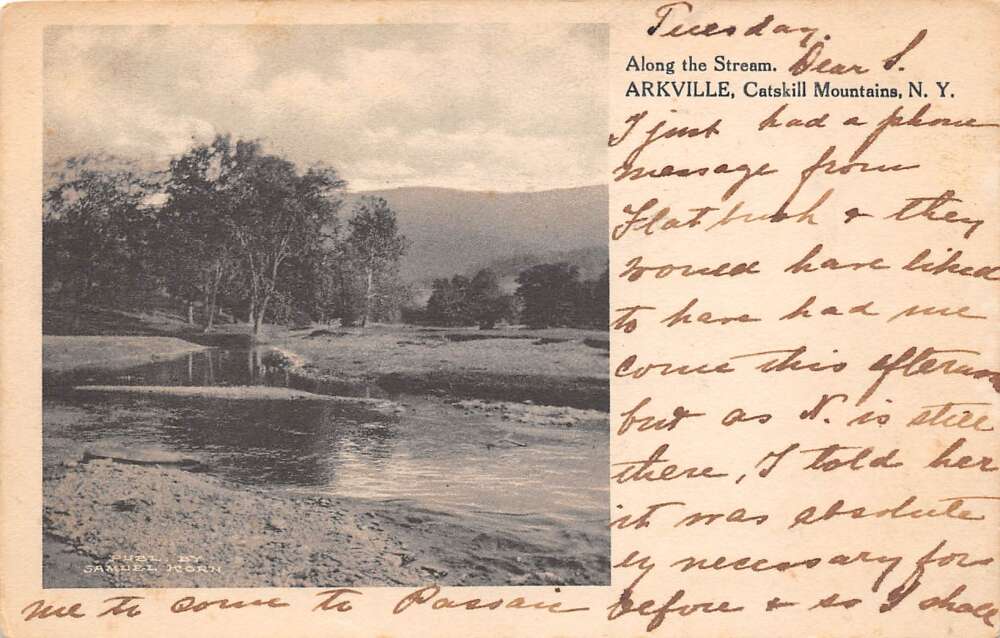 Tuesday.
Along the Stream. Dear S.
ARKVILLE, Catskill Mountains, N. Y.
I just had a phone
message from
Flatbush & they
would have liked
to have had me
come this afternoon
but as N. is still
there, I told her
it was absolute
ly necessary for
me to come to Passaic before & so I shall
PUBL. BY
SAMUEL KORN